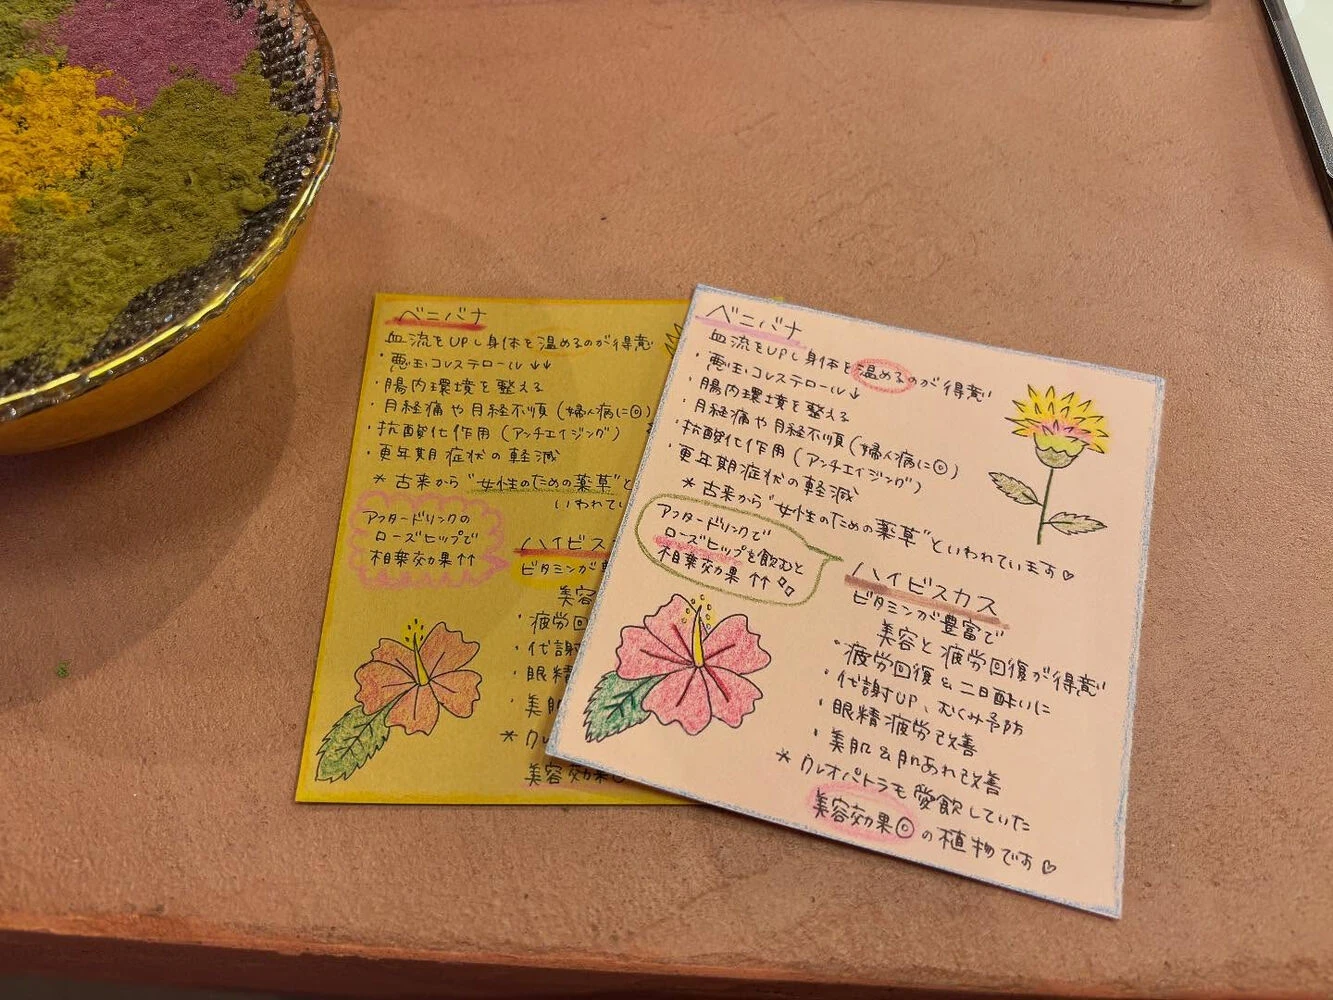 ベニバナ
血流をUPし身体を温めるのが得意
・悪玉コレステロール↓↓
・腸内環境を整える
・月経痛や月経不順(婦人病に◎)
・抗酸化作用(アンチエイジング)
・更年期症状の軽減
*古来から"女性のための薬草"と
いわれてい
アフタードリンクの
ローズヒップで
相乗効果↑↑
ハイビス
ビタミンが
美容
・疲労回
・代謝
・眼精
・美肌
*クレ
美容効果◎
ベニバナ
血流をUPし身体を温めるのが得意
・悪玉コレステロール↓
・腸内環境を整える
・月経痛や月経不順(婦人病に◎)
・抗酸化作用(アンチエイジング)
・更年期症状の軽減
*古来から"女性のための薬草"といわれています♡
アフタードリンクで
ローズヒップを飲むと
相乗効果↑↑
ハイビスカス
ビタミンが豊富で
美容と疲労回復が得意
・疲労回復&二日酔いに
・代謝UP、むくみ予防
・眼精疲労改善
・美肌&肌あれ改善
*クレオパトラも愛飲していた
美容効果◎の植物です♡